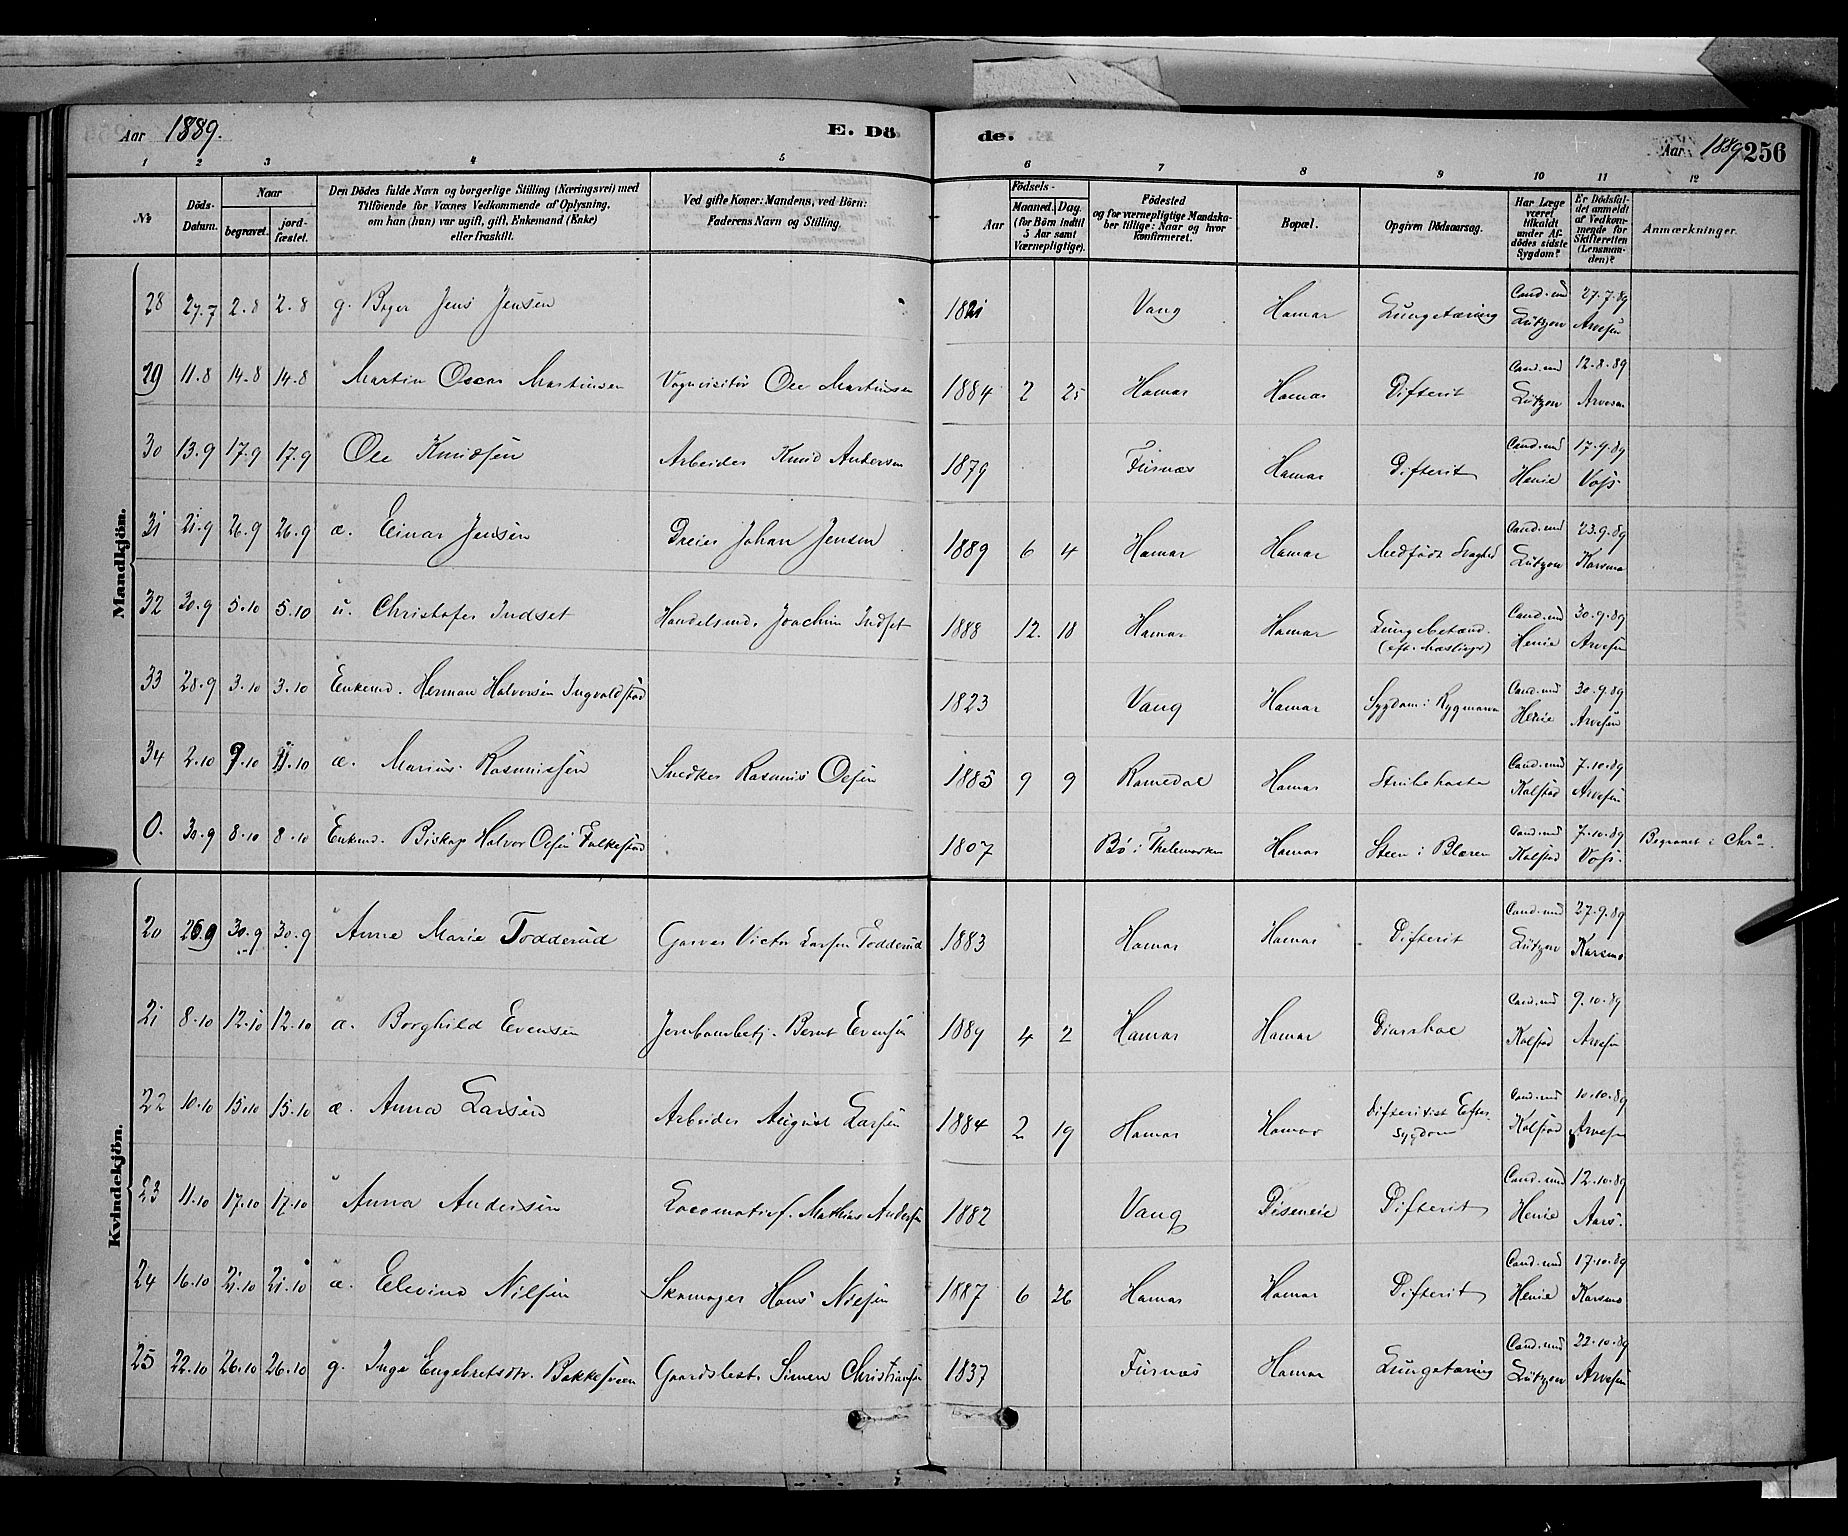 Aar 1889. E. Dö de. Aar 1889 256
1 2 3 4 5 6 7 8 9 10 11 12
№
Döds-Datum.
Naar
begravet.
jord-fæstet.
Den Dödes fulde Navn og borgerlige Stilling (Næringsvei) med
Tilföiende for Voxnes Vedkommende af Oplysning,
om han (hun) var ugift, gift, Enkemand (Enke)
eller fraskilt.
Ved gifte Koner: Mandens, ved Börn:
Faderens Navn og Stilling.
Födsels-
Aar
Maaned. Dag.
(for Börn indtil
5 Aar samt
Værnepligtige).
Födested
og for værnepligtige Mandska-
ber tillige: Naar og hvor
konfirmeret.
Bopæl.
Opgiven Dödsaarsag.
Har Læge
været
tilkaldt
under Af-
dödes sidste
Sygdom?
Er Dödsfal-
det anmeldt
af Vedkom-
mende for
Skifteretten
(Lensman-
den)?
Anmærkninger.
Mandkjön.
28 27.7 2.8 2.8 g. Bøger Jens Jensen 1821 Vang Hamar Lungetæring Cand. med Lützow 27.7.89 Arvesen
29 11.8 14.8 14.8 Martin Oscar Martinsen Vognvisitør Ole Martinsen 1884 2 25 Hamar Hamar Difterit Cand. med Lützow 12.8.89 Arvesen
30 13.9 17.9 17.9 Ole Knudsen Arbeider Knud Andersen 1879 Furnæs Hamar Difterit Cand. med Henie 17.9.89 Voss
31 21.9 26.9 26.9 æ. Einar Jensen Dreier Johan Jensen 1889 6 4 Hamar Hamar Medfødt Svaghed Cand. med Lützow 23.9.89 Karsmo
32 30.9 5.10 5.10 u. Christofer Indset Handelsmd. Joachim Indset 1888 12. 18 Hamar Hamar Lungebetænd. (eft. Mæslinger) Cand. med Henie 30.9.89 Arvesen
33 28.9 3.10 3.10 Enkemd. Herman Halvorsen Ingvoldstad 1823 Vang Hamar Sygdom i Rygmarven Cand. med Henie 30.9.89 Arvesen
34 2.10 9.10 11.10 æ. Marius Rasmussen Snedker Rasmus Olsen 1885 9 9 Romedal Hamar Strubehoste Cand. med Kolstad 7.10.89 Arvesen
0. 30.9 8.10 8.10 Enkemd. Biskop Halvor Olsen Folkestad 1807 Bø i Thelemarken Hamar Steen i Blæren Cand. med Kolstad 7.10.89 Voss. Begravet i Chra.
Kvindekjön.
20 26.9 30.9 30.9 Anne Marie Todderud Garver Victor Larsen Todderud 1883 Hamar Hamar Difterit Cand. med Lützow 27.9.89 Karsmo
21 8.10 12.10 12.10 æ. Borghild Evensen Jernbanebetj. Bernt Evensen 1889 4 2 Hamar Hamar Diarrhoe Cand. med Kolstad 9.10.89 Arvesen
22 10.10 15.10 15.10 æ. Anna Larsen Arbeider August Larsen 1884 2 19 Hamar Hamar Difteritisk Efter Sygdom Cand. med Kolstad 10.10.89 Arvesen
23 11.10 17.10 17.10 Anna Andersen Locomotivf. Mathias Andersen 1882 Vang Diseneie Difterit Cand. med Henie 12.10.89 Aars.
24 16.10 21.10 21.10 æ. Elevine Nilsen Skomager Hans Nilsen 1887 6 26 Hamar Hamar Difterit Cand. med Henie 17.10.89 Karsmo
25 22.10 26.10 26.10 g. Inge Engebretsdtr. Bakkesveen Gaardsbest. Simen Christiansen 1837 Furnæs Hamar Lungetæring Cand. med Lützow 22.10.89 Arvesen